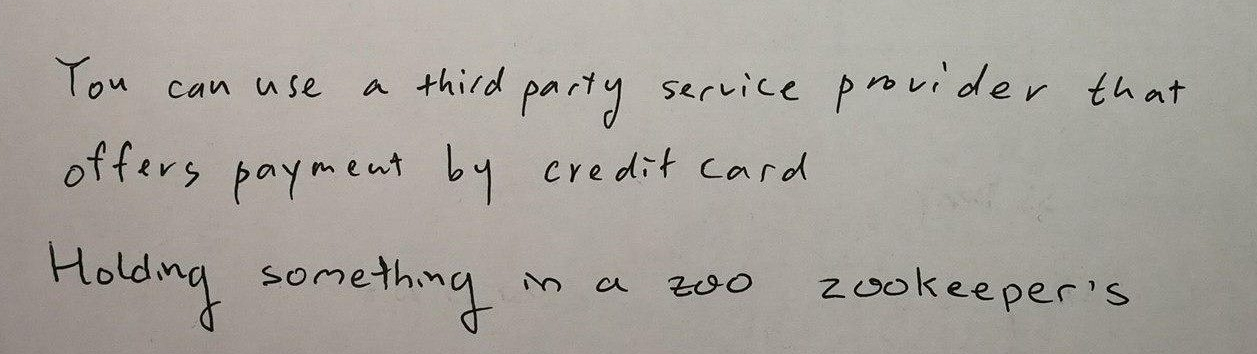 You can use a third party service provider that
offers payment by credit card
Holding something in a zoo zookeeper's